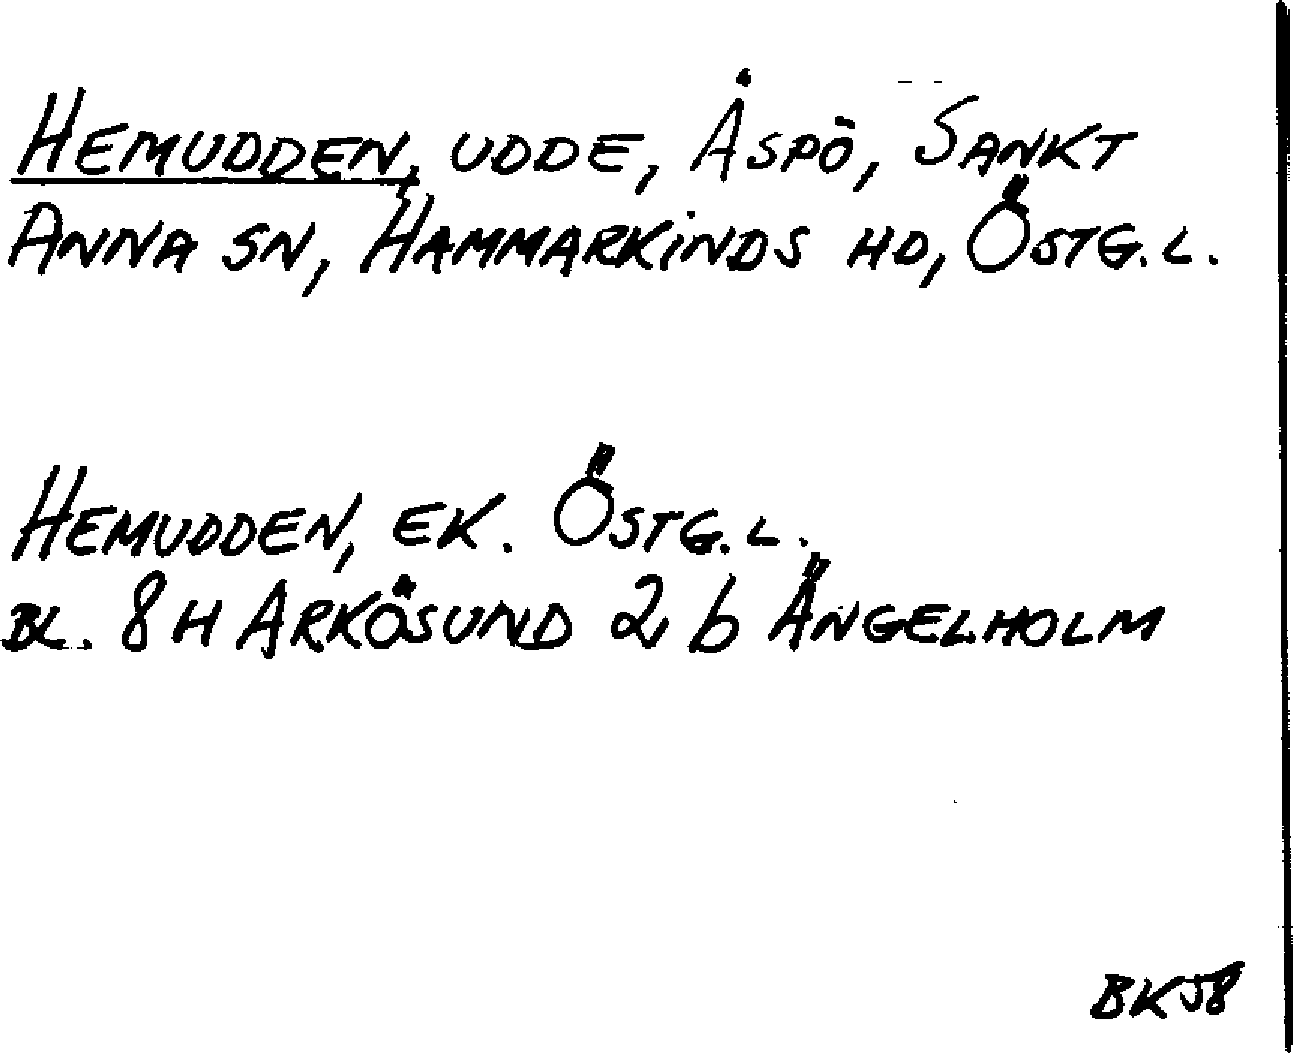 HEMUDDEN, UDDE, ÅSPÖ, SANKT
ANNA SN, HAMMARKINDS HD, ÖSTG.L.
HEMUDDEN, EK. ÖSTG.L.
BL. 8H ARKÖSUND 2 b ÄNGELHOLM
BK58